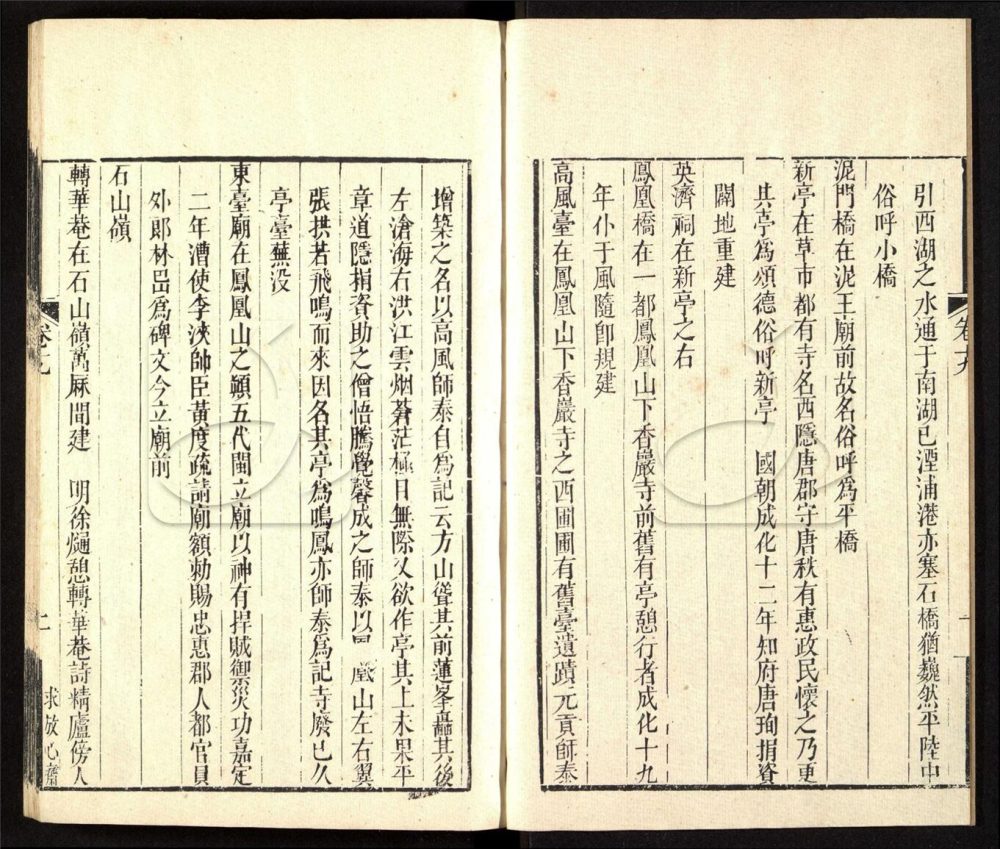 引西湖之水通于南湖已湮浦港亦塞石橋猶巍然平陸中
俗呼小橋
泥門橋在泥王廟前故名俗呼爲平橋
新亭在草市都有寺名西隱唐郡守唐秩有惠政民懷之乃更
其亭爲頌德俗呼新亭 國朝成化十二年知府唐珣捐資
闢地重建
英濟祠在新亭之右
鳳凰橋在一都鳳凰山下香嚴寺前舊有亭憩行者成化十九
年仆于風隨卽規建
高風臺在鳳凰山下香嚴寺之西圃圃有舊臺遺蹟元貢師泰
增築之名以高風師泰自爲記云方山聳其前蓮峯矗其後
左滄海右洪江雲烟蒼茫極目無際又欲作亭其上未果平
章道隱捐資助之僧悟騰覺聲成之師泰以 凰山左右翼
張拱若飛鳴而來因名其亭爲鳴鳳亦師泰爲記寺廢已久
亭臺蕪没
東臺廟在鳳凰山之巓五代閩立廟以神有捍賊禦災功嘉定
二年漕使李浹帥臣黄度疏請廟額勅賜忠惠郡人都官員
外郎林岊爲碑文今立廟前
石山嶺
轉華菴在石山嶺萬厤間建 明徐𤊹憩轉華菴詩精廬傍人
卷十九
一
卷十九
二
求放心齋